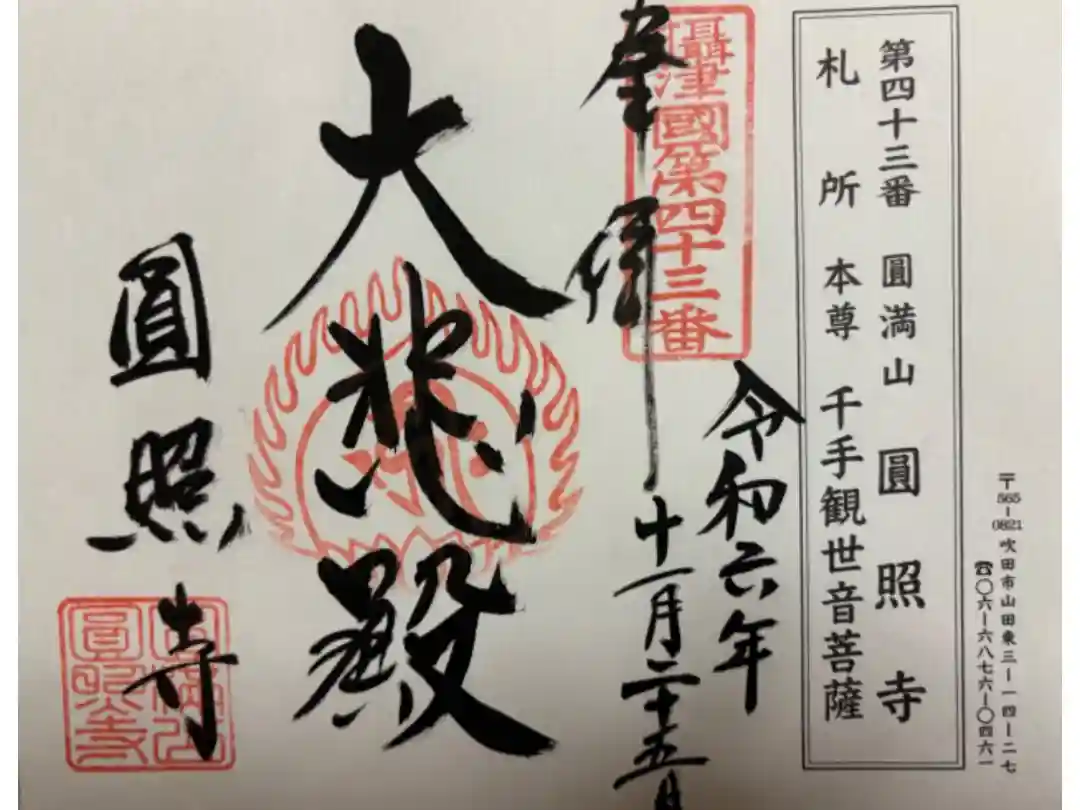 第四十三番 圓満山 圓照寺
札所本尊 千手観世音菩薩
〒565-0821 吹田市山田東三ー一四ー二七
☎〇六ー六八七六ー〇四六一
攝津國第四十三番
奉拝
令和六年
十一月二十五日
大悲殿
圓照寺
圓満山
圓照寺